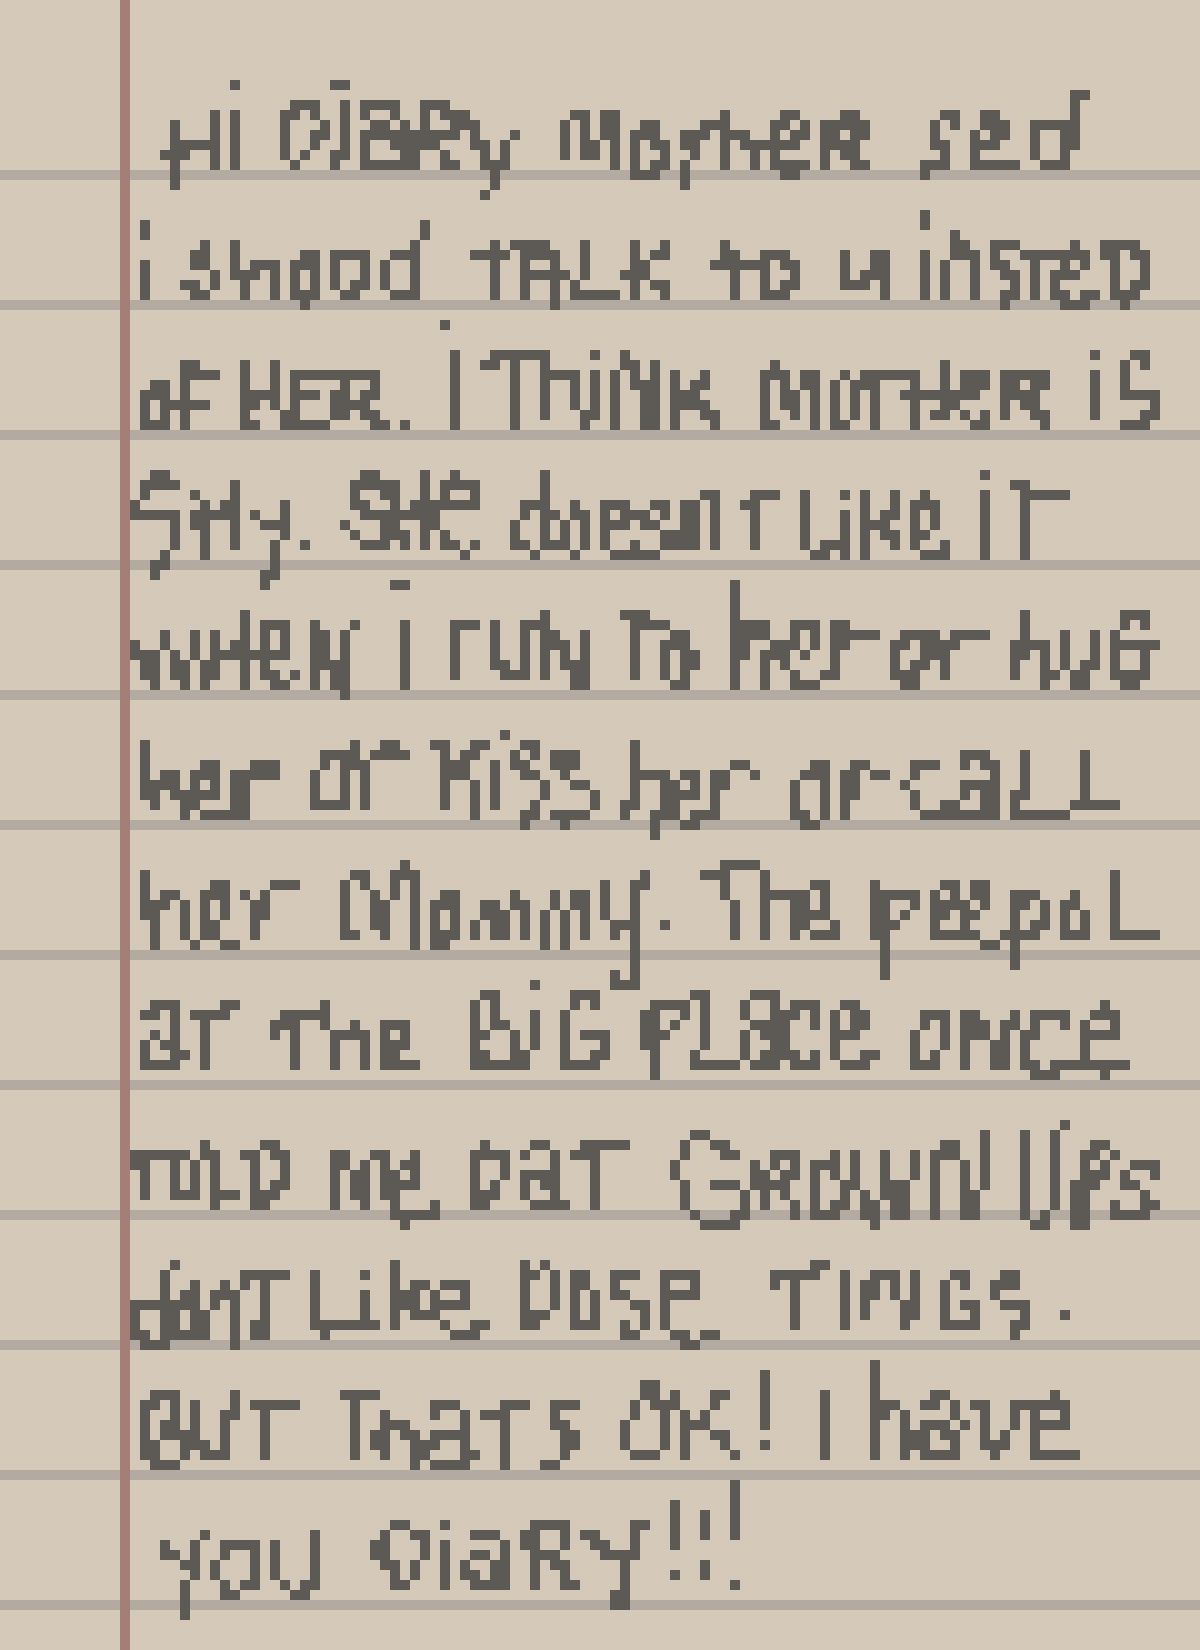 Hi DiaRy MoTHeR sed
i shood TALK to u insTeD
of HER. I THiNK MoTHeR is
Sily. SHe doesnT Like iT
wHeN i ruN To her or huG
her or Kiss her or caLL
her Mommy. The peepoL
aT The BiG PLace oNce
ToLD me DaT GRowN UPs
donT Like Dose TiNGs.
BUT ThaTs OK! I have
you DiaRY!!!